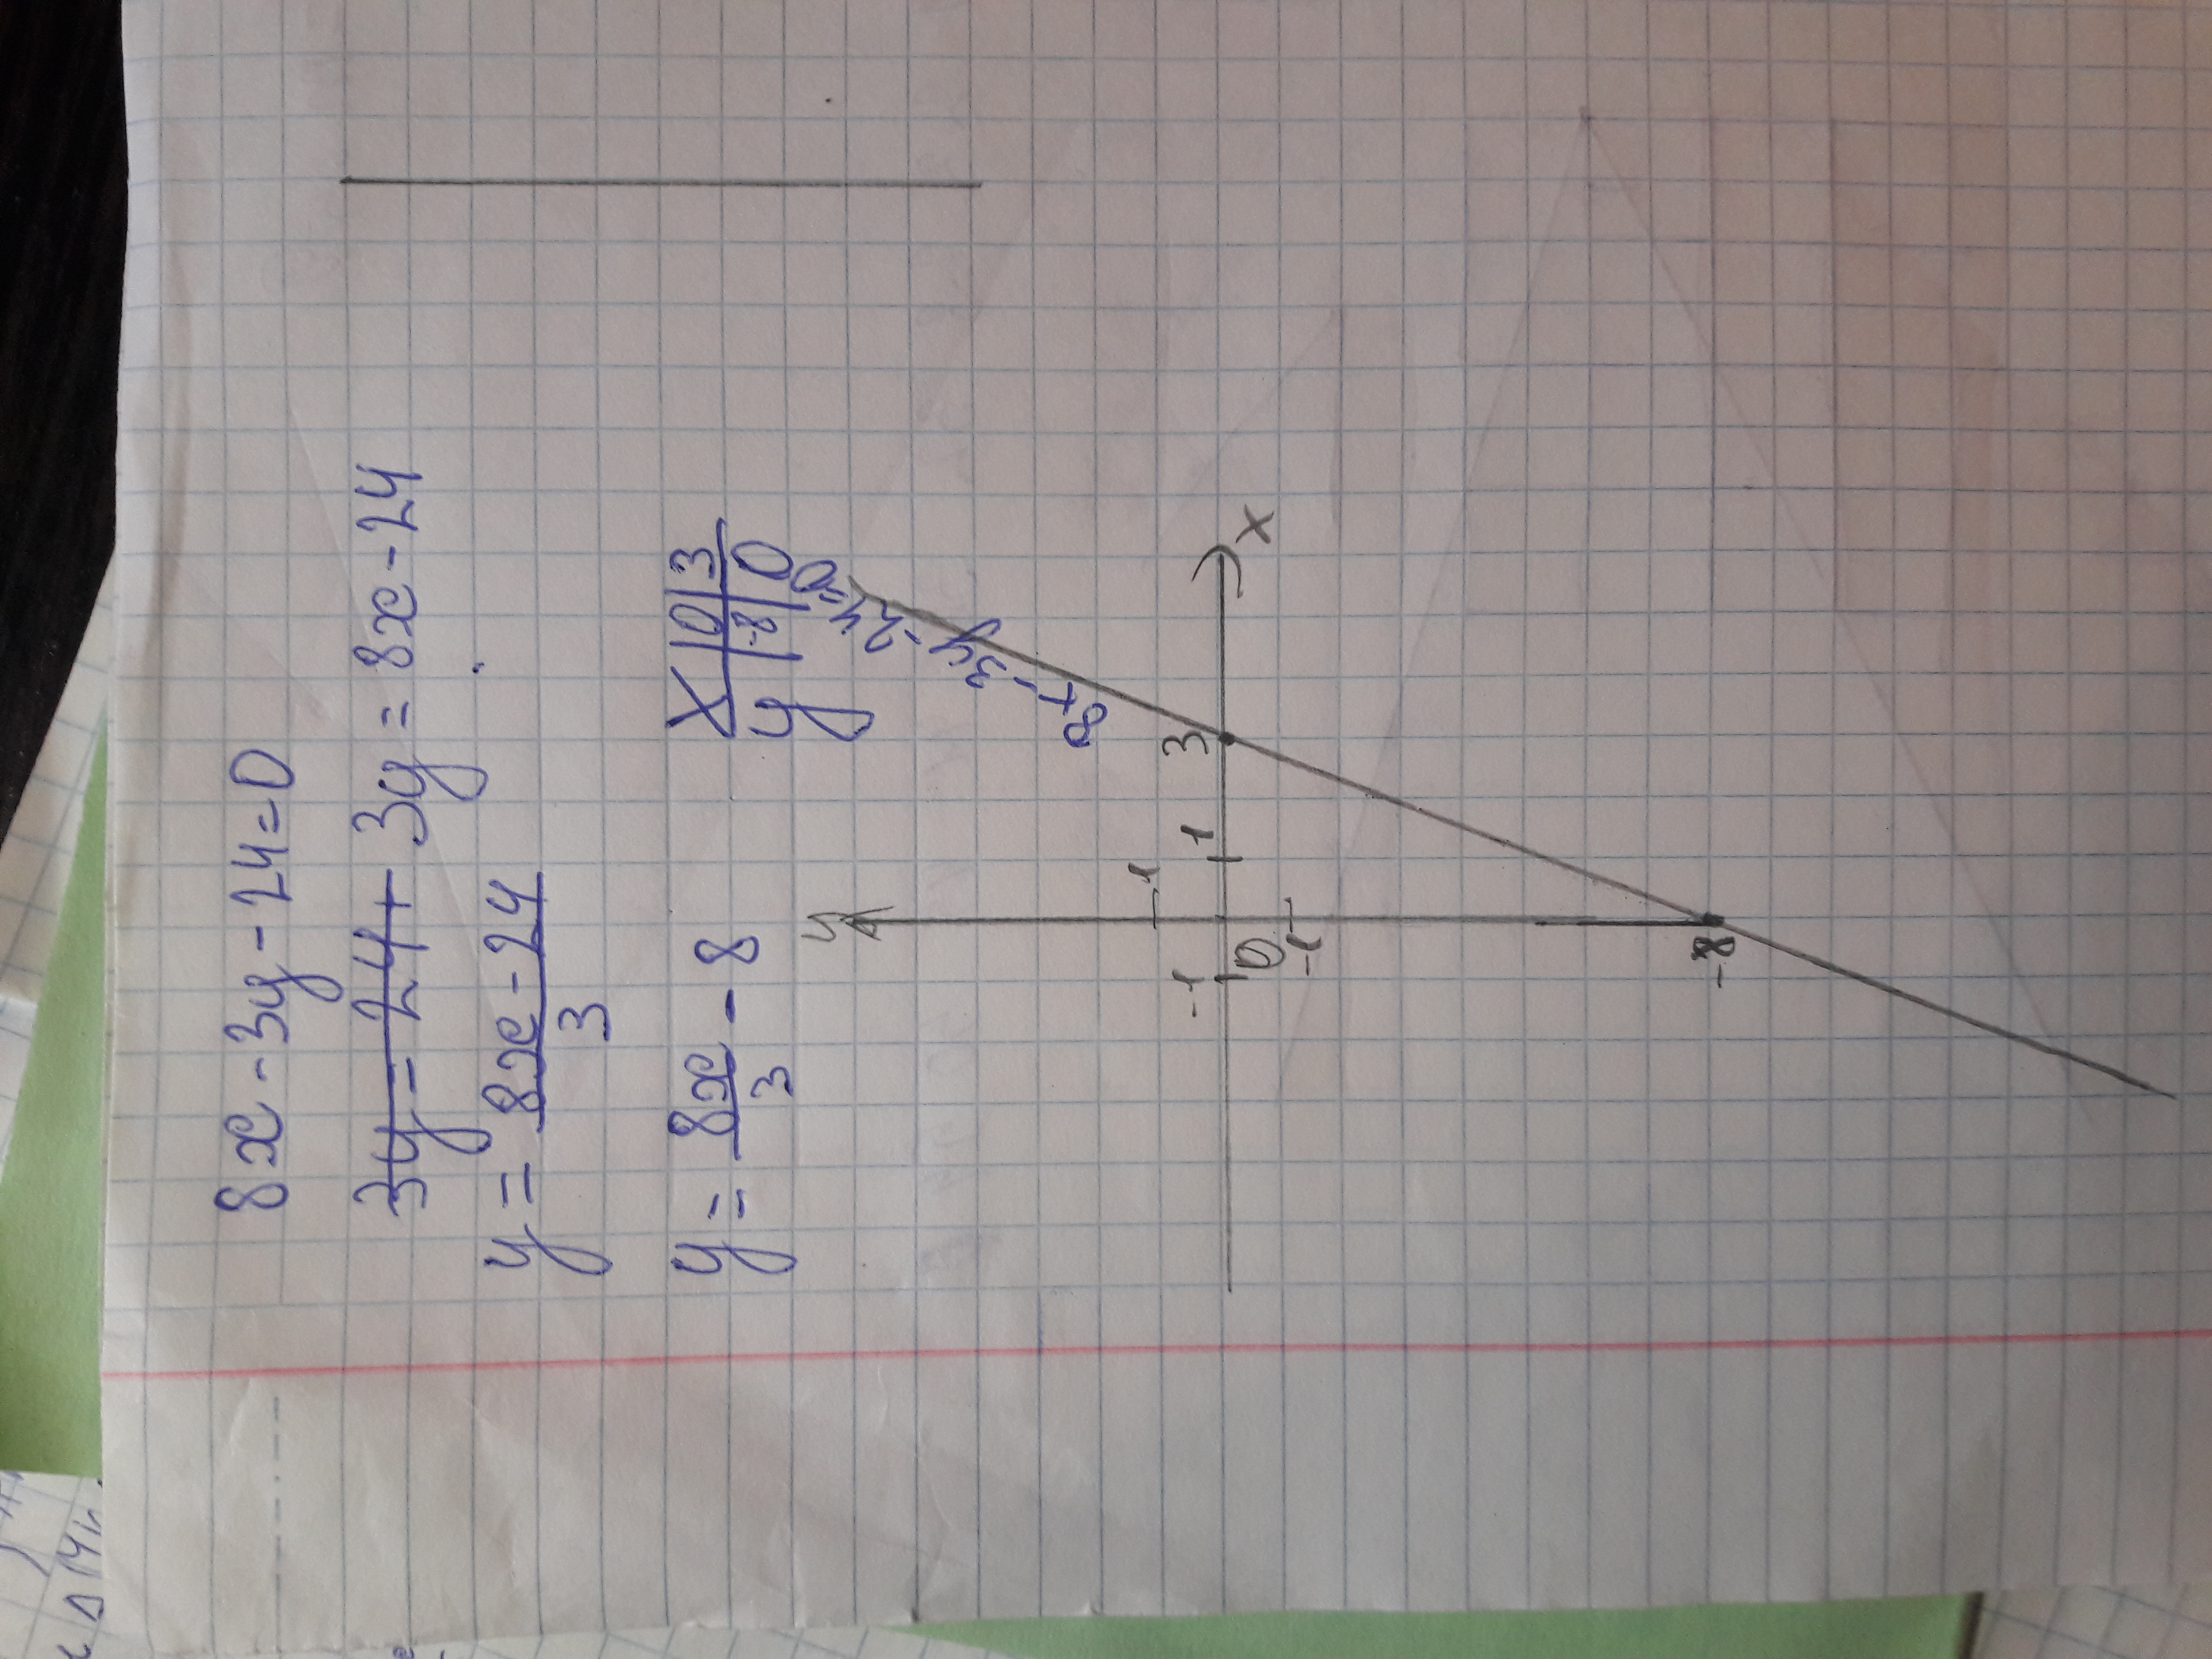 8x - 3y - 24 = 0
3y = 24 + 3y = 8x - 24
y = 8x - 24 / 3
y = 8x / 3 - 8
x | 0 | 3
y | -8 | 0
y
8x - 3y - 24 = 0
1
-1 1 3 x
0
-1
-8